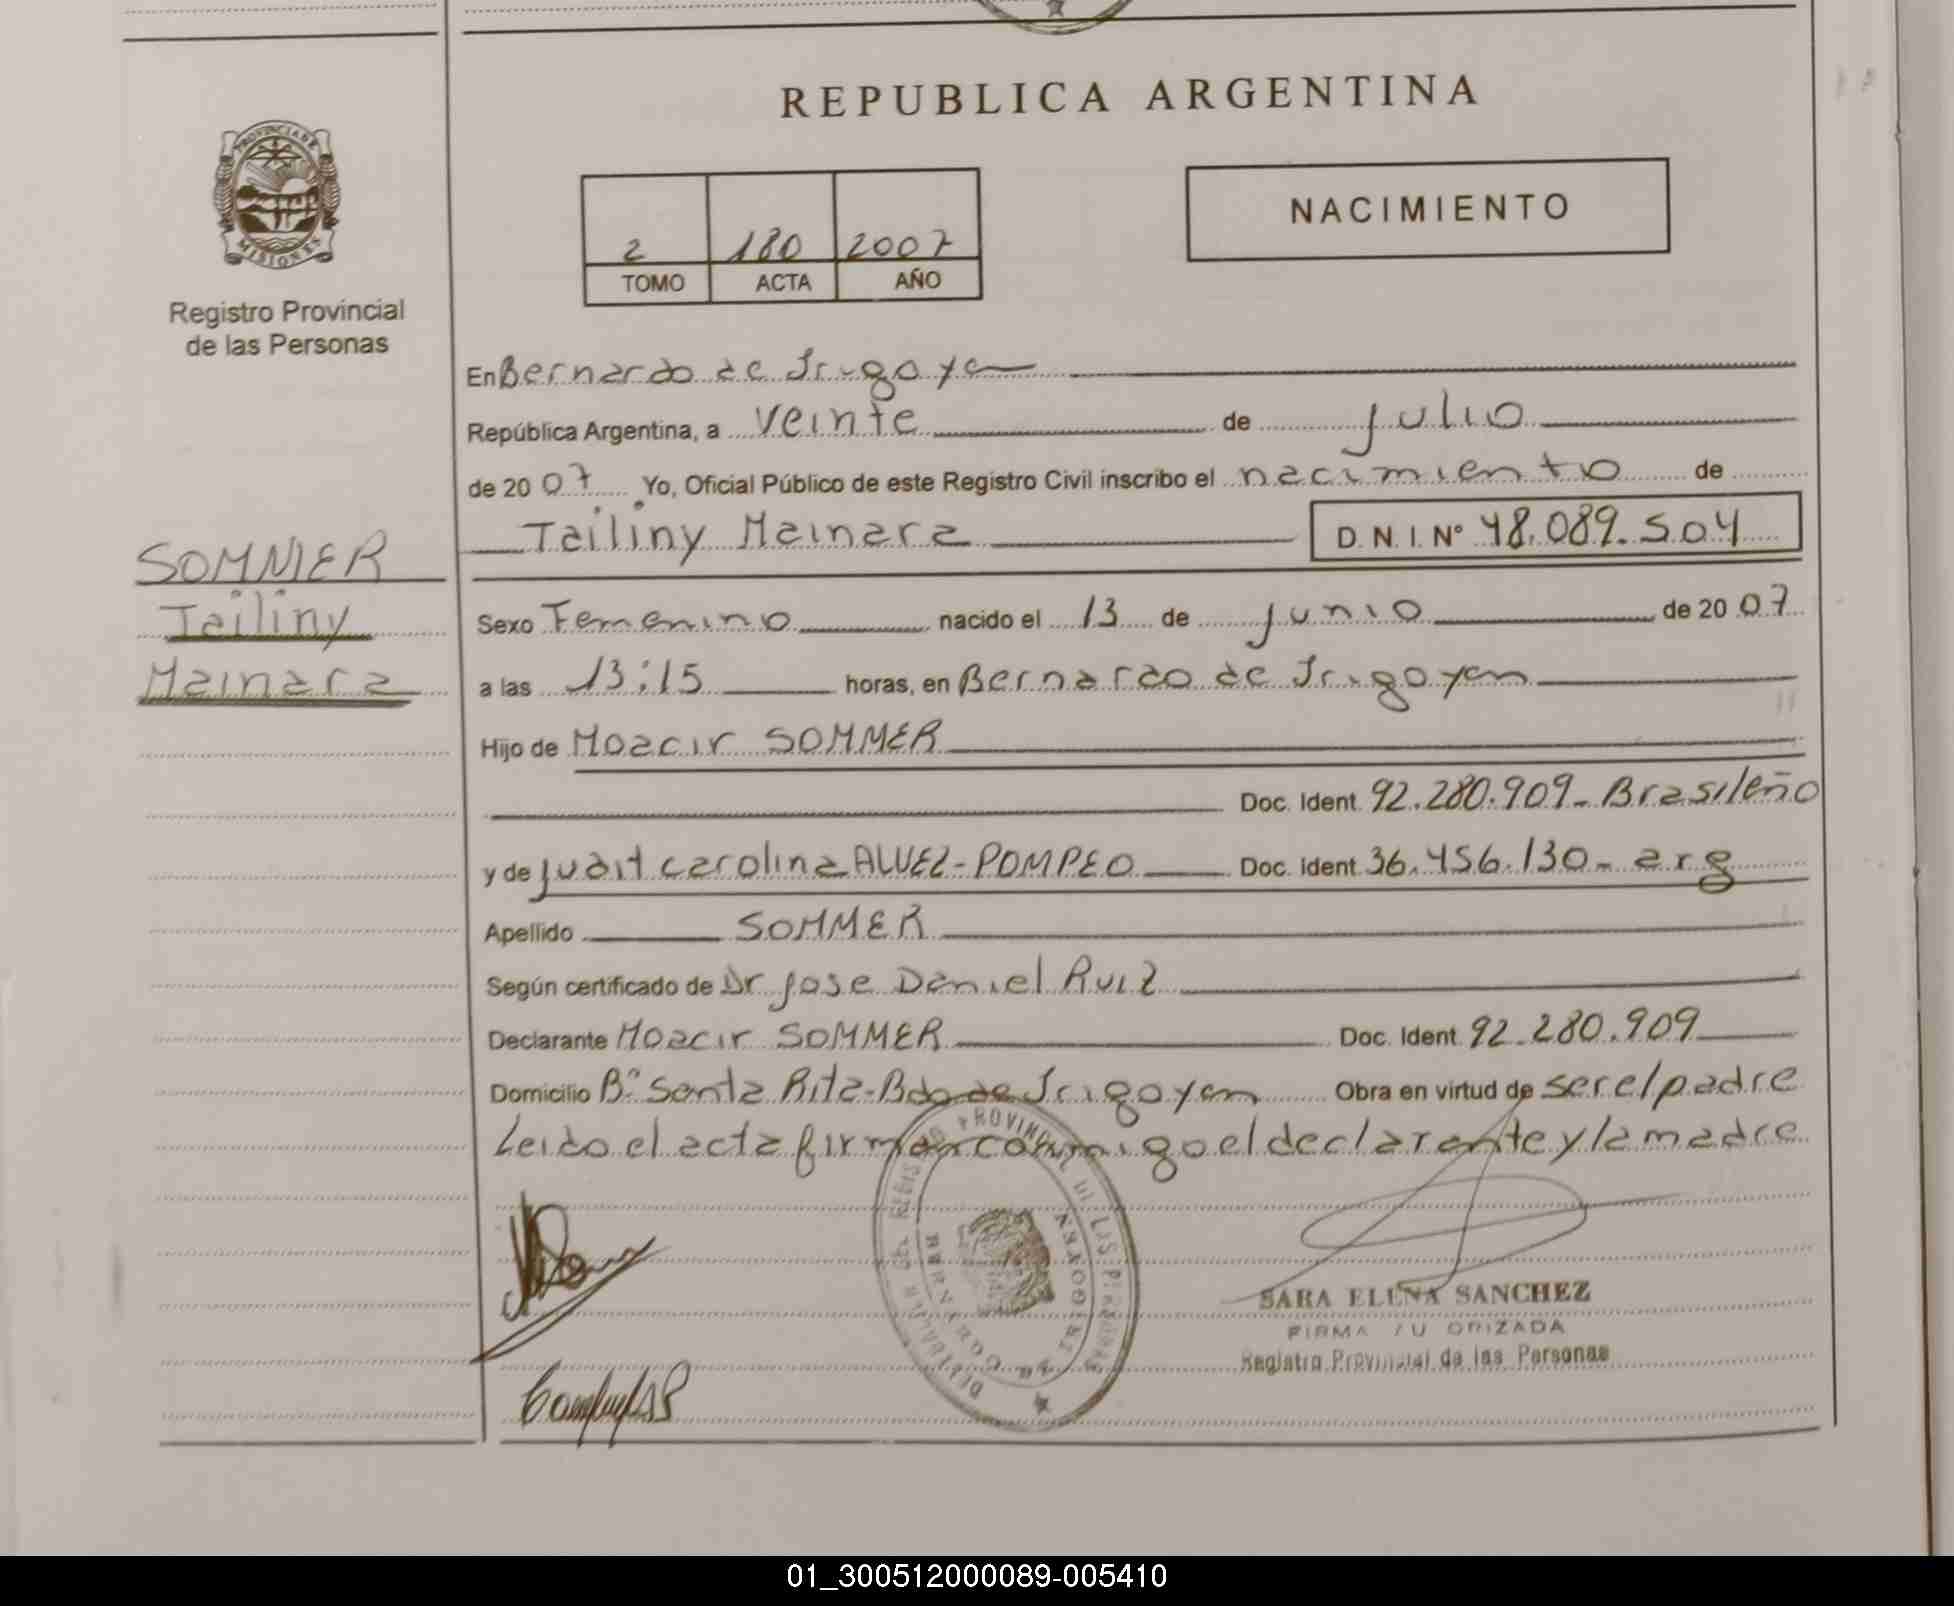 REPUBLICA ARGENTINA
PROVINCIA DE
MISIONES
Registro Provincial
de las Personas
2 180 2007
TOMO ACTA AÑO
NACIMIENTO
En Bernardo de Irigoyen
República Argentina, a veinte de julio
de 2007 Yo, Oficial Público de este Registro Civil inscribo el nacimiento de
Tailiny Mainara D.N.I. Nº 48.089.504
SOMMER
Tailiny
Mainara
Sexo Femenino nacido el 13 de junio de 2007
a las 13:15 horas, en Bernardo de Irigoyen
Hijo de Moacir SOMMER
Doc. Ident. 92.280.909- Brasileño
y de Judit carolina ALVEZ-POMPEO Doc. Ident. 36.456.130- arg
Apellido SOMMER
Según certificado de Dr Jose Daniel Ruiz
Declarante Moacir SOMMER Doc. Ident. 92.280.909
Domicilio Bº Santa Rita-Bdo de Irigoyen Obra en virtud de ser el padre
Leido el acta firman conmigo el declarante y la madre
SARA ELENA SANCHEZ
FIRMA AUTORIZADA
Registro Provincial de las Personas
01_300512000089-005410